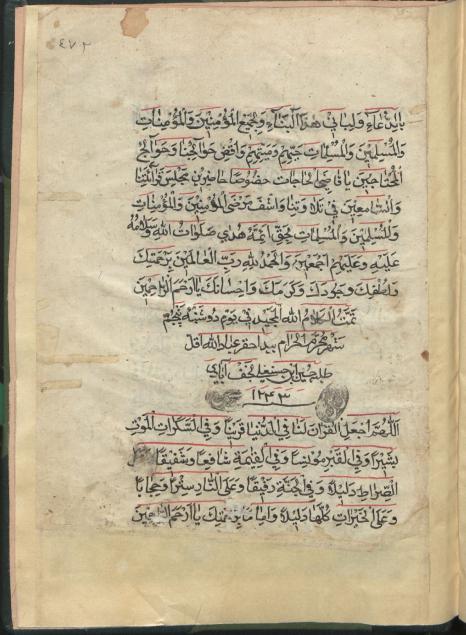 ٤٧٢
هذا البناء ولجميع المؤمنين والمؤمنات
والمسلمين والمسلمات حيّهم وميّتهم واقض حوائجنا وحوائج
المحتاجين يا قاضي الحاجات خصوصًا حاضرين مجلس قرائتنا
والسامعين في تلاوتنا واشف مرضى المؤمنين والمؤمنات
والمسلمين والمسلمات بحق ائمة هدى صلوات الله وسلامه
عليه وعليهم اجمعين والحمد لله رب العالمين برحمتك
ولطفك وجودك وكرمك واحسانك يا ارحم الراحمين
تمت الكلام الله المجيد في يوم دوشنبه پنجم
شهر محرم الحرام بيد احقر عباد الله اقل
نجف آبادي
١٢٤٣
اللهم اجعل القرآن لنا في الدنيا قرينا وفي السكرات الموت
بشيرا وفي القبر مونسا وفي القيمة شافعا وشفيقا
الصراط دليلا وفي الجنة رفيقا وعلى النار سترا وحجابا
وعلى الخيرات كلها دليلا واماما برحمتك يا ارحم الراحمين